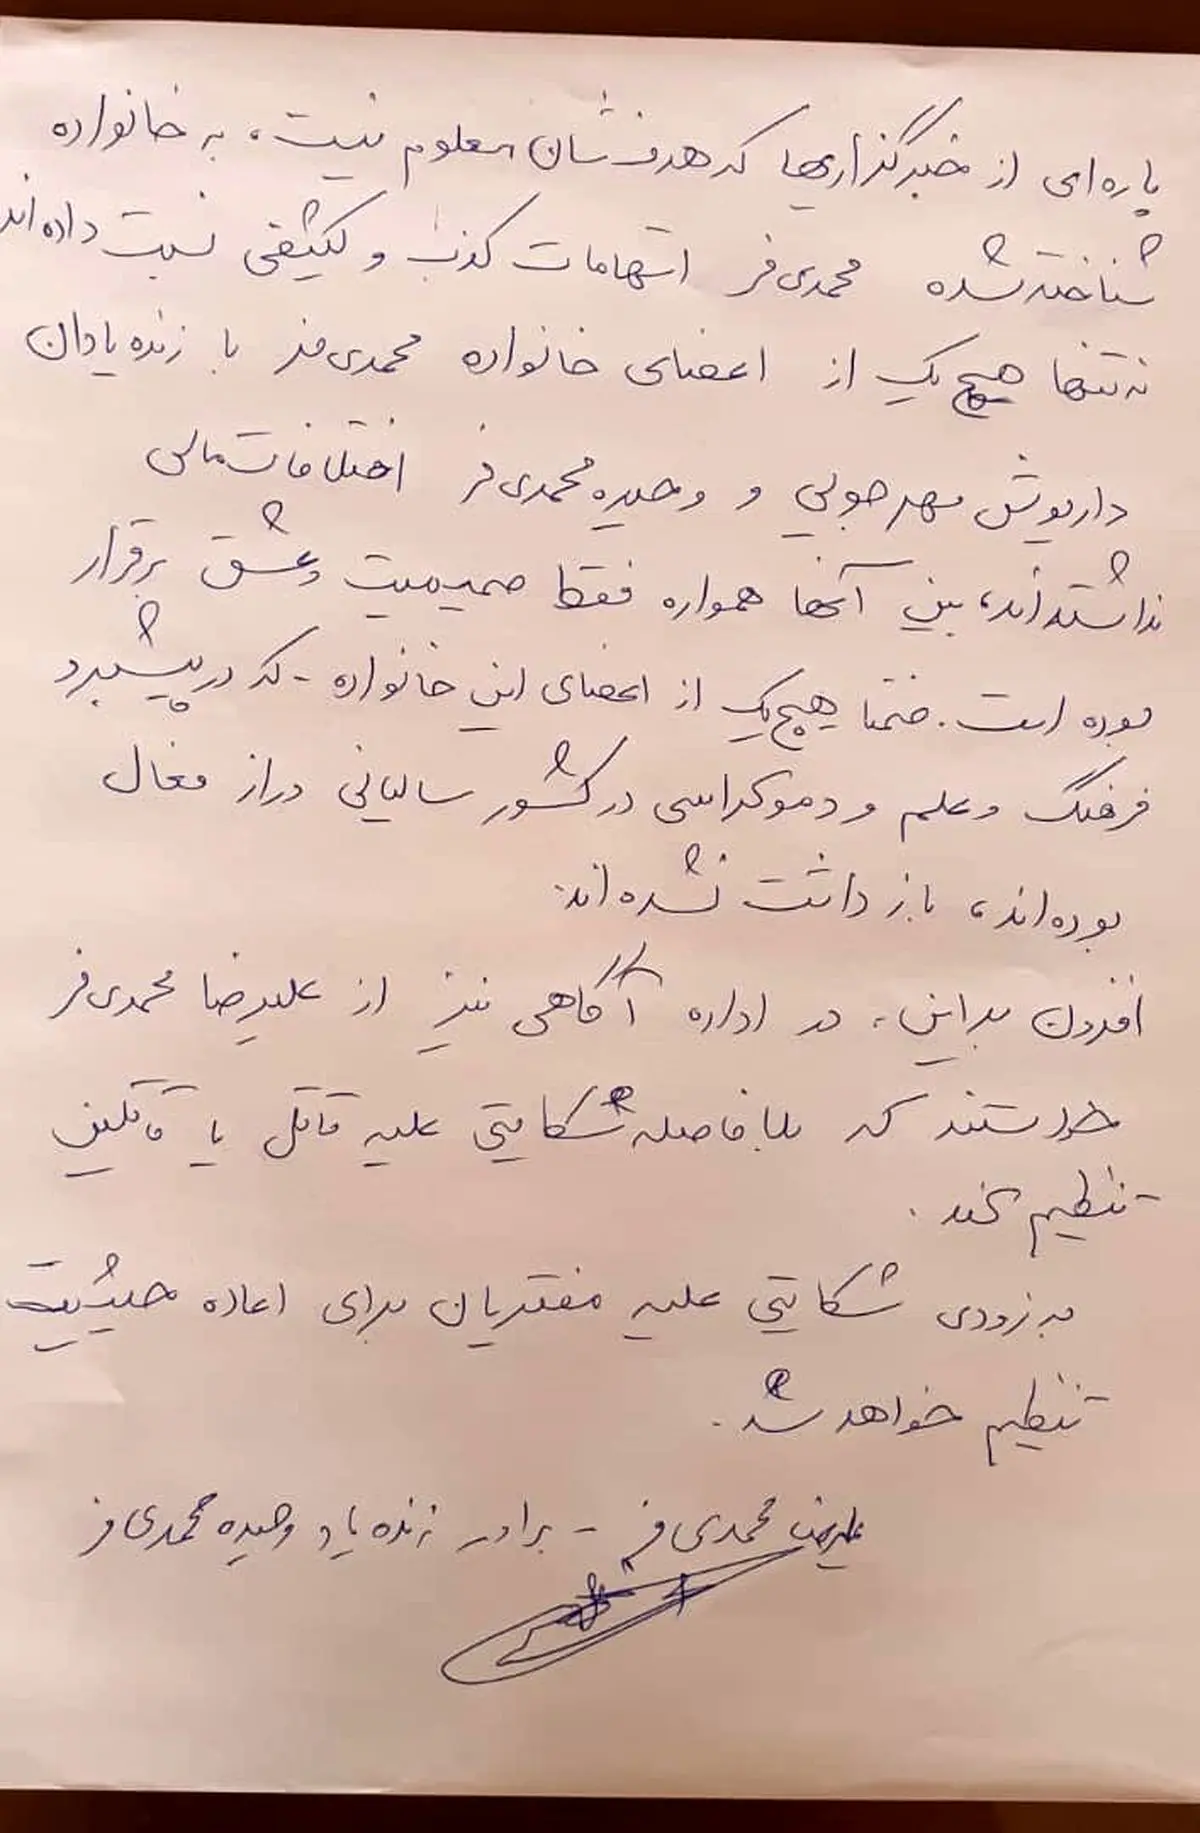 پاره‌ای از خبرگذاریها که هدفشان معلوم نیست، به خانواده
شناخته‌شده محمدی‌فر اتهامات کذب و کثیفی نسبت داده‌اند
نه‌تنها هیچ‌یک از اعضای خانواده محمدی‌فر با زنده‌یادان
داریوش مهرجویی و وحیده محمدی‌فر اختلافات مالی
نداشته‌اند، بین آنها همواره فقط صمیمیت و عشق برقرار
بوده است. ضمنا هیچ‌یک از اعضای این خانواده - که در پیشبرد
فرهنگ و علم و دموکراسی در کشور سالیانی دراز فعال
بوده‌اند، بازداشت نشده‌اند.
افزون براین، در اداره آگاهی نیز از علیرضا محمدی‌فر
خواستند که بلافاصله شکایتی علیه قاتل یا قاتلین
تنظیم کند.
به زودی شکایتی علیه مفتریان برای اعاده حیثیت
تنظیم خواهد شد.
علیرضا محمدی‌فر - برادر زنده یاد وحیده محمدی‌فر